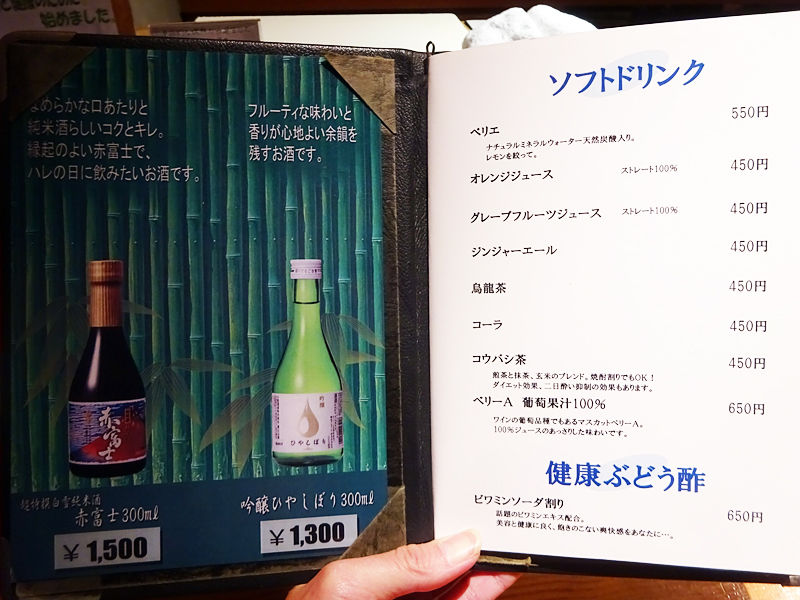 始めました
なめらかな口あたりと
純米酒らしいコクとキレ。
縁起のよい赤富士で、
ハレの日に飲みたいお酒です。
フルーティな味わいと
香りが心地よい余韻を
残すお酒です。
赤富士
吟醸
ひやしぼり
超特撰白雪純米酒
赤富士300㎖
¥ 1,500
吟醸ひやしぼり300㎖
¥ 1,300
ソフトドリンク
ペリエ 550円
ナチュラルミネラルウォーター天然炭酸入り。
レモンを絞って。
オレンジジュース ストレート100% 450円
グレープフルーツジュース ストレート100% 450円
ジンジャーエール 450円
烏龍茶 450円
コーラ 450円
コウバシ茶 450円
煎茶と抹茶、玄米のブレンド。焼酎割りでもOK！
ダイエット効果、二日酔い抑制の効果もあります。
ベリーA 葡萄果汁100% 650円
ワインの葡萄品種でもあるマスカットベリーA。
100%ジュースのあっさりした味わいです。
健康ぶどう酢
ビワミンソーダ割り 650円
話題のビワミンエキス配合。
美容と健康に良く、飽きのこない爽快感をあなたに…。